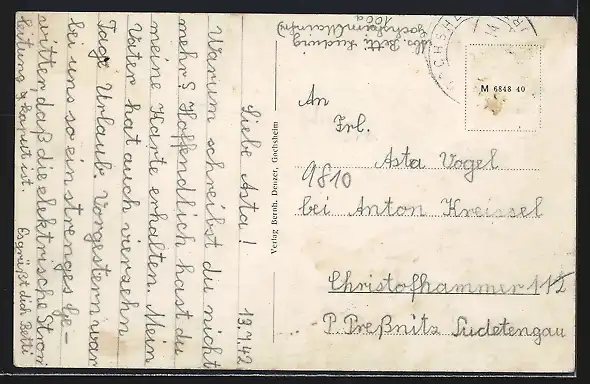 13.7.42
Liebe Asta!
Warum schreibst du nicht
mehr? Hoffendlich hast du
meine Karte erhalten. Mein
Vater hat auch vierzehn
Tage Urlaub. Vorgestern war
bei uns so ein strenges Ge-
witter, daß die elektrische Strom
leitung kaputt ist. Es grüßt dich Betti
Verlag Bernh. Denzer, Gochsheim
Abs. Betti Ludwig
Gochsheim (Mainfr)
100a
M 6848 40
An
Frl.
Asta Vogel
9810
bei Anton Kreissel
Christofhammer 112
P. Preßnitz Sudetengau